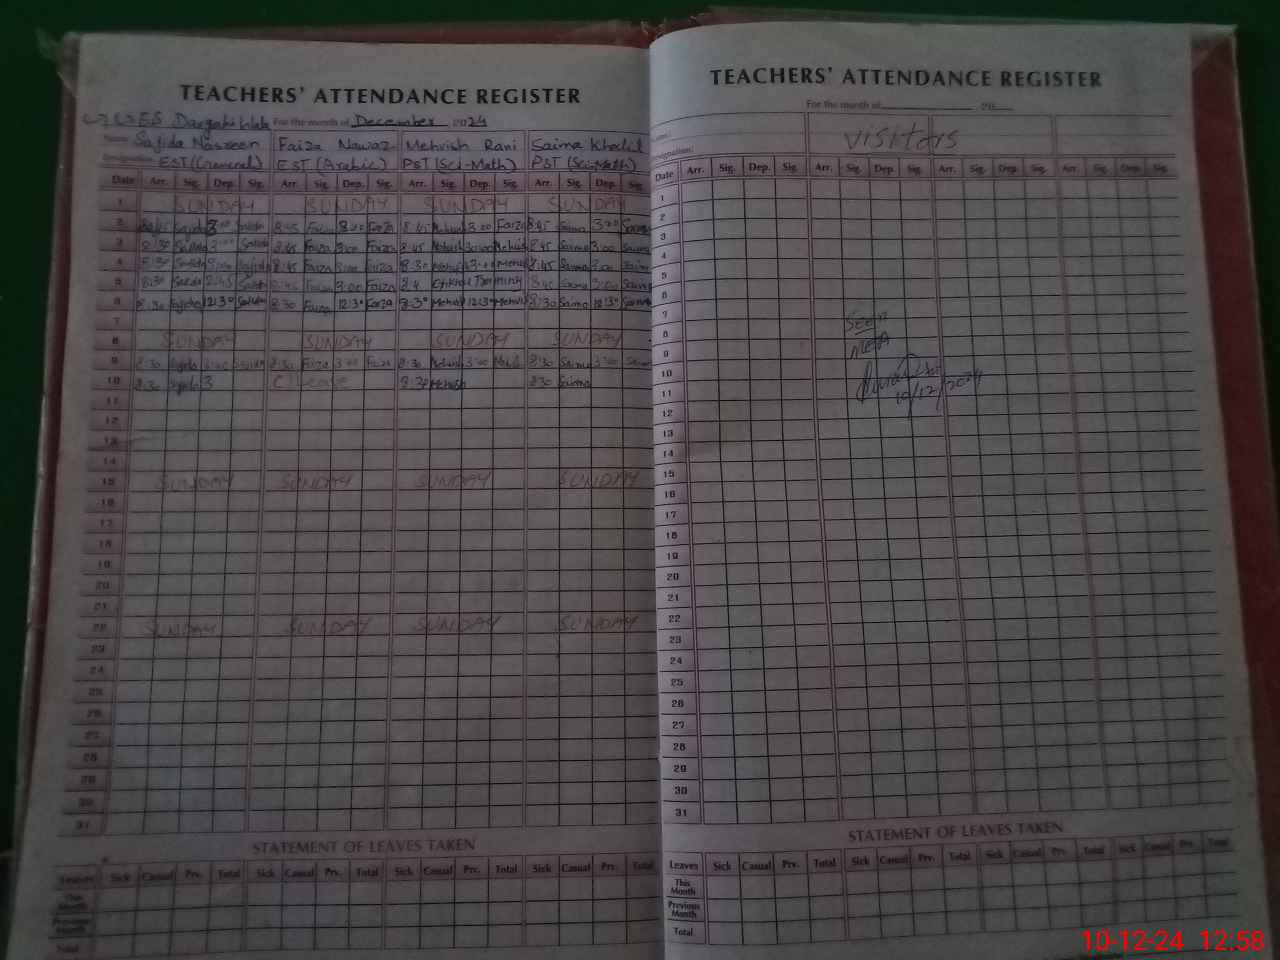 TEACHERS' ATTENDANCE REGISTER
For the month of December 2024
Name Sajida Nasreen Faiza Nawaz Mehvish Rani Saima Khalil
Designation EST (General) EST (Arabic) PST (Sci-Math) PST (Sci-Math)
Date Arr. Sig. Dep. Sig. Arr. Sig. Dep. Sig. Arr. Sig. Dep. Sig. Arr. Sig. Dep. Sig.
1 SUNDAY SUNDAY SUNDAY SUNDAY
2 8:45 Faiza 3:00 Faiza 8:45 3:00 8:45 Saima 3:00 Saima
3 8:30 Sajida 3:00 Sajida 8:45 Faiza 3:00 Faiza 8:45 Mehvish 3:00 Mehvish 8:45 Saima 3:00 Saima
4 8:30 Sajida 3:00 Sajida 8:45 Faiza 3:00 Faiza 8:30 Mehvish 3:00 Mehvish 8:45 Saima 3:00 Saima
5 8:30 Sajida 2:45 Sajida 8:45 Faiza 3:00 Faiza Saima 3:00 Saima
6 8:30 Sajida 12:30 Sajida 8:30 Faiza 12:30 Faiza 8:30 Mehvish 12:30 Mehvish 8:30 Saima 12:30 Saima
7
8 SUNDAY SUNDAY SUNDAY SUNDAY
9 8:30 Sajida 3:00 Sajida 8:30 Faiza 3:00 Faiza 8:30 Mehvish 3:00 Mehvish 8:30 Saima 3:00 Saima
10 8:30 Sajida 3 C/Leave 8:30 Mehvish 8:30 Saima
11
12
13
14
15 SUNDAY SUNDAY SUNDAY SUNDAY
16
17
18
19
20
21
22 SUNDAY SUNDAY SUNDAY SUNDAY
23
24
25
26
27
28
29
30
31
STATEMENT OF LEAVES TAKEN
Leaves Sick Casual Prv. Total Sick Casual Prv. Total Sick Casual Prv. Total Sick Casual Prv. Total
This Month
Previous Month
Total
TEACHERS' ATTENDANCE REGISTER
For the month of 20
visitors
Designation:
Date Arr. Sig. Dep. Sig. Arr. Sig. Dep. Sig. Arr. Sig. Dep. Sig. Arr. Sig. Dep. Sig.
1
2
3
4
5
6
7
8 Seen
9 MEA
10
11 10/12/2024
12
13
14
15
16
17
18
19
20
21
22
23
24
25
26
27
28
29
30
31
STATEMENT OF LEAVES TAKEN
Leaves Sick Casual Prv. Total Sick Casual Prv. Total Sick Casual Prv. Total Sick Casual Prv. Total
This Month
Previous Month
Total
10-12-24 12:58